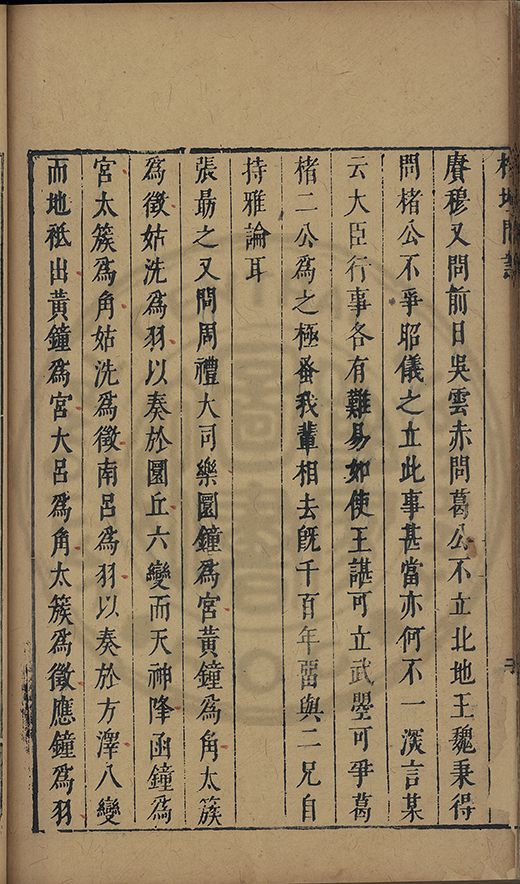 榕壇問業
賡穆又問前日吳雲赤問葛公不立北地王魏秉得
問楮公不爭昭儀之立此事甚當亦何不一深言某
云大臣行事各有難易如使王諶可立武曌可爭葛
楮二公為之極蚤我輩相去既千百年留與二兄自
持雅論耳
張勗之又問周禮大司樂圜鐘為宮黃鐘為角太簇
為徵姑洗為羽以奏於圜丘六變而天神降函鐘為
宮太簇為角姑洗為徵南呂為羽以奏於方澤八變
而地祗出黃鐘為宮大呂為角太簇為徵應鐘為羽